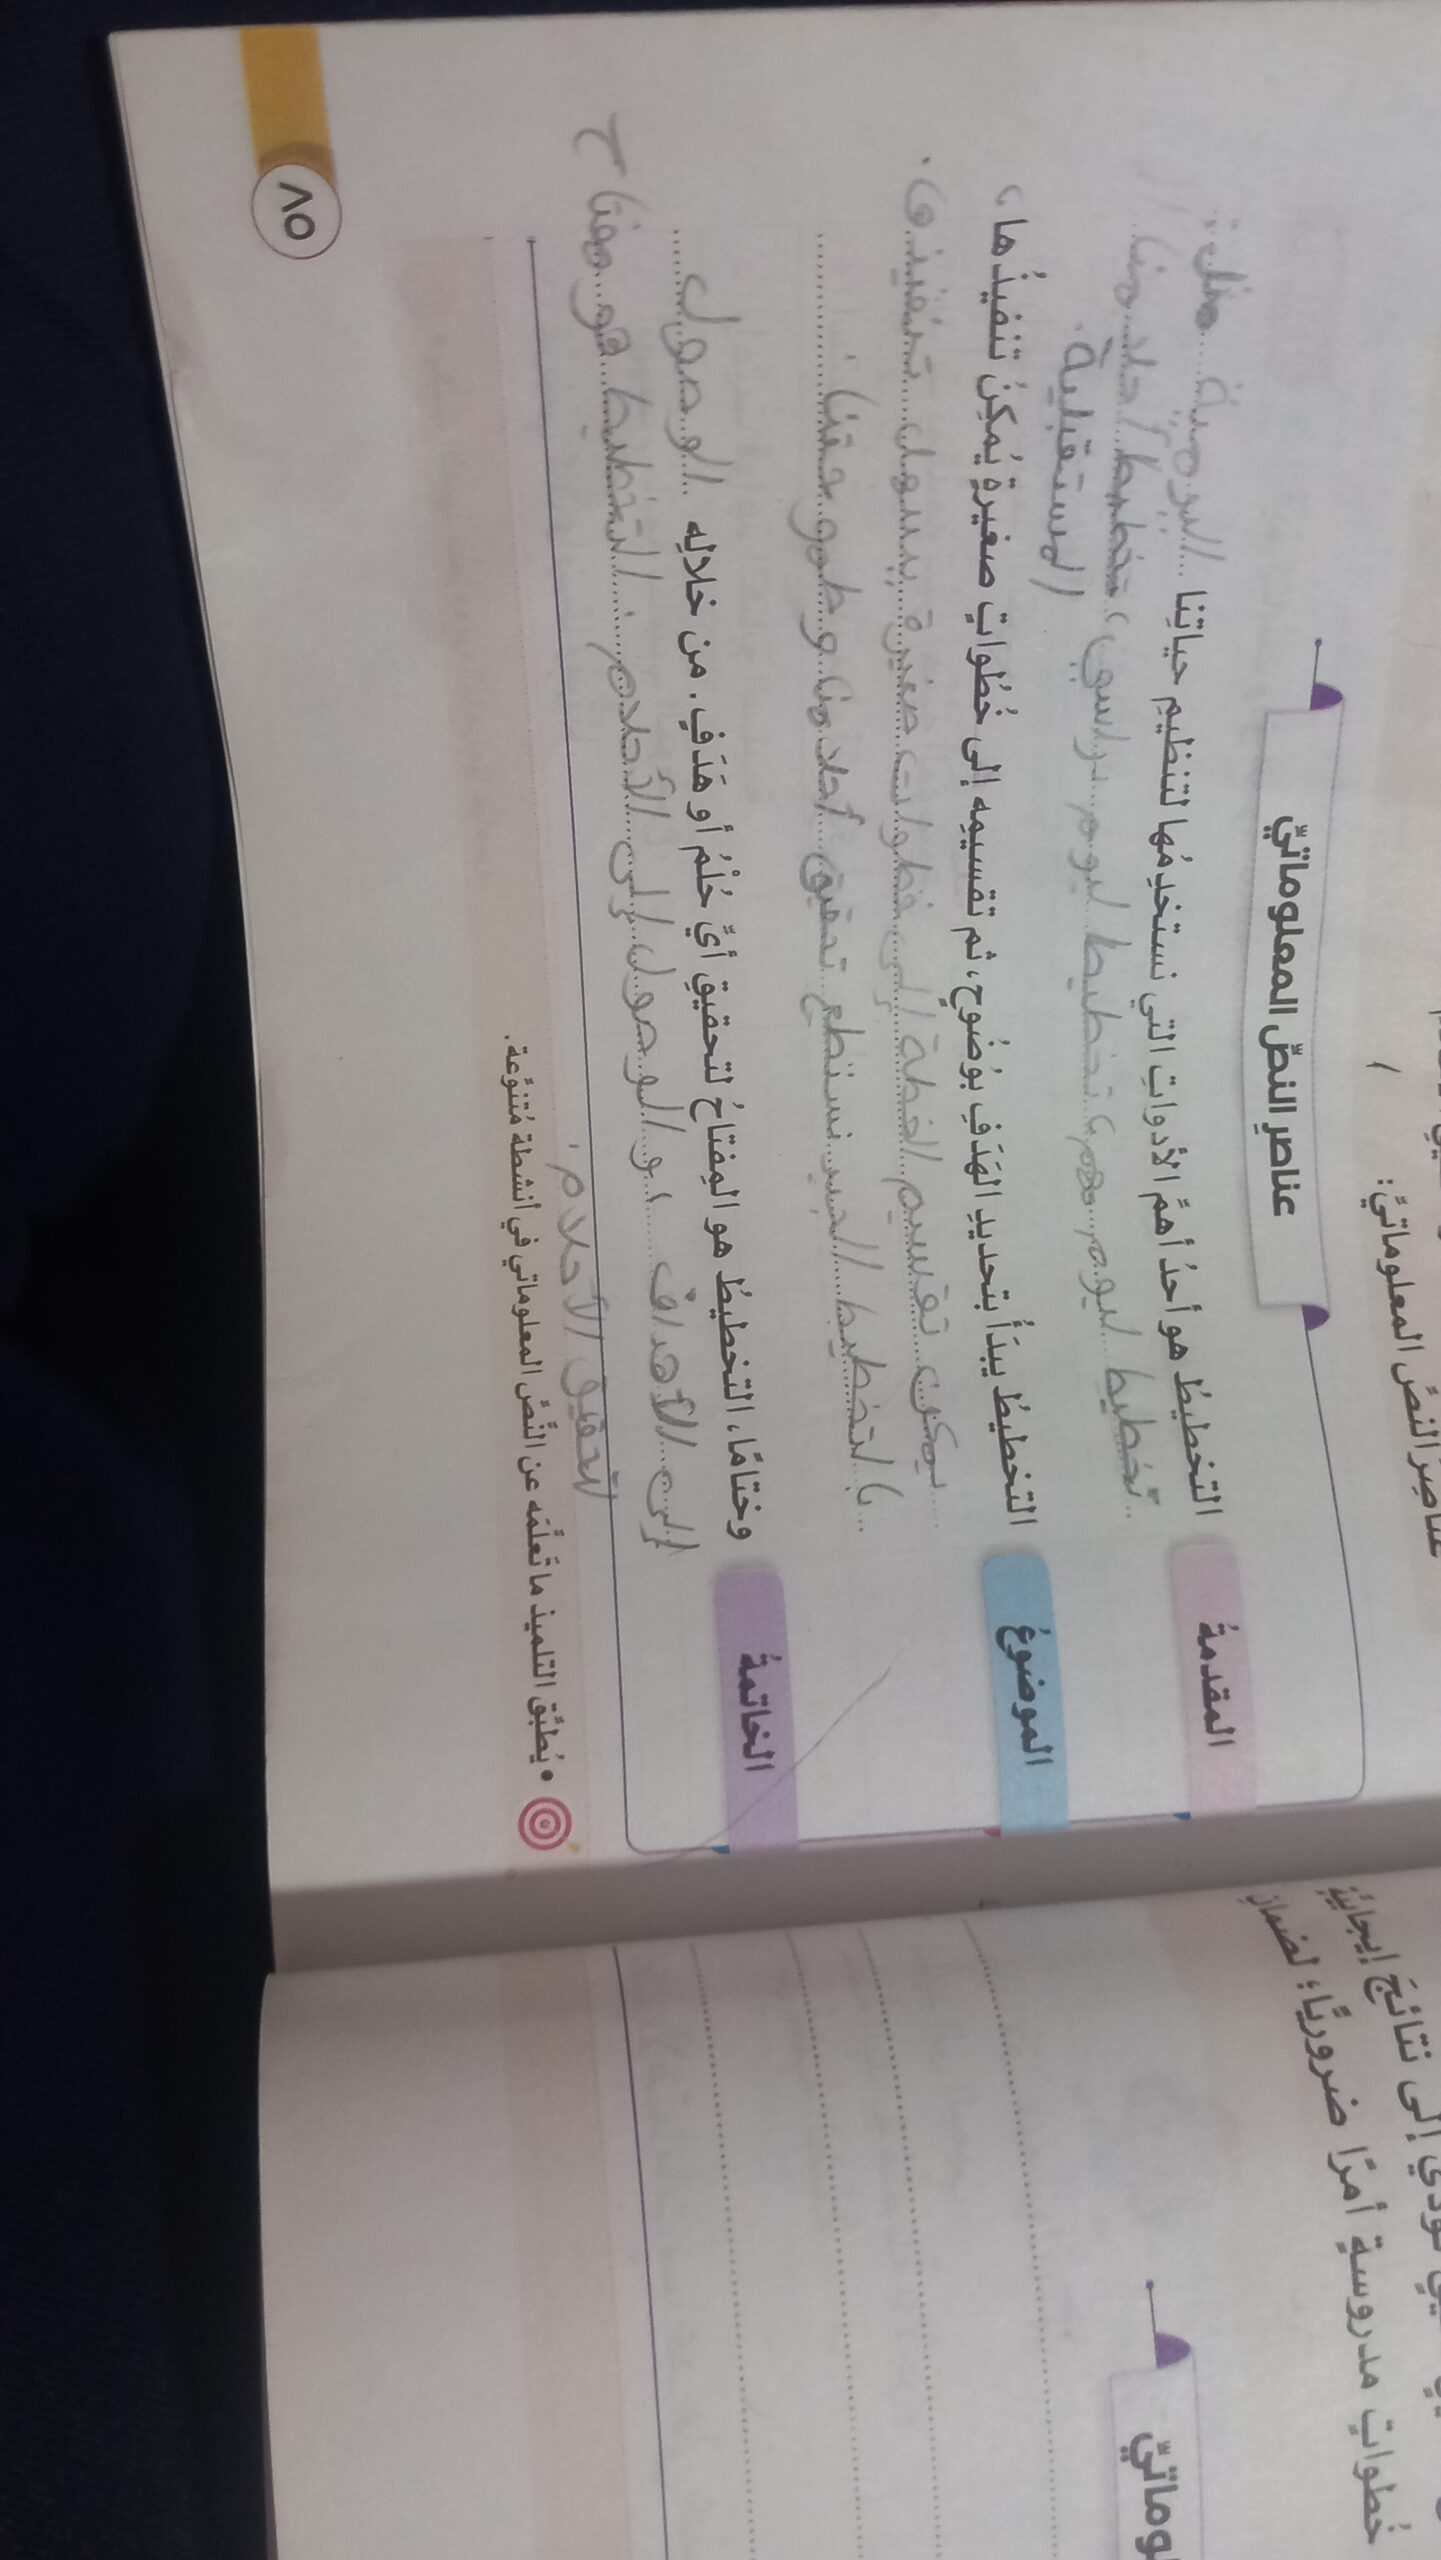 عناصر النصّ المعلوماتيّ:
عناصرِ النصِّ المعلوماتيِّ
المقدمةُ
التخطيطُ هو أحدُ أهمِّ الأدواتِ التي نستخدِمُها لتنظيمِ حياتِنا اليومية مثل:
تخطيط ليوم مهم، تخطيط ليوم دراسي، تخطيط أحلامنا
المستقبلية.
الموضوعُ
التخطيطُ يبدَأُ بتحديدِ الهَدَفِ بوُضُوحٍ، ثم تقسيمِه إلى خُطُواتٍ صغيرةٍ يُمكِنُ تنفيذُها،
يمكن تقسيم الخطة إلى خطوات صغيرة يسهل تنفيذى.
بالتخطيط الجيد نستطع تحقيق أحلامنا وطموحتنا.
الخاتمةُ
وختامًا، التخطيطُ هو المِفتاحُ لتحقيقِ أيِّ حُلْمٍ أو هَدَفٍ. من خلالِه الوصول
إلى الأهداف، و الوصول إلى الأحلام. التخطيط هو مفتاح
لتحقيق الأحلام.
• يُطبِّق التلميذ ما تَعلَّمَه عن النَّصِّ المعلوماتي في أنشطة مُتنوِّعة.
٨٥
نتائجَ إيجابيَّةٍ
خُطواتٍ مدروسةٍ أمرًا ضروريًّا؛ لضمانِ